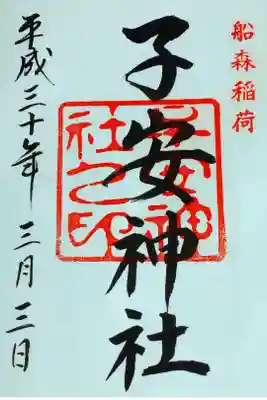 船森稲荷
子安神社
子安神社之印
平成三十年 三月三日